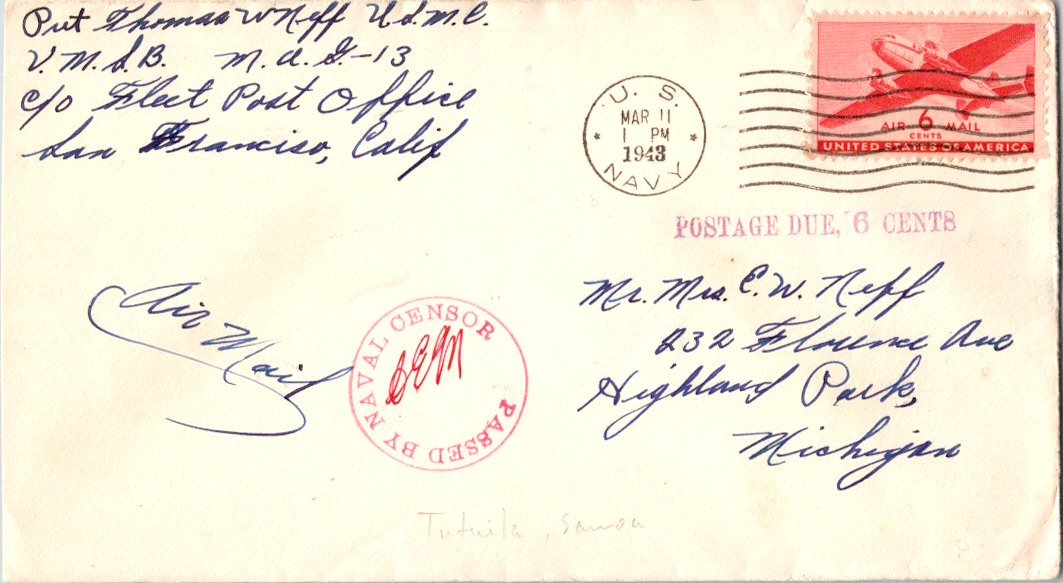 Pvt Thomas W Neff U.S.M.C.
V.M.S.B. M.A.G-13
c/o Fleet Post Office
San Franciso, Calif
U. S.
MAR 11
1 PM
1943
NAVY
AIR 6 MAIL
CENTS
UNITED STATES OF AMERICA
POSTAGE DUE, 6 CENTS
Mr. Mrs. C. W. Neff
232 Florence Ave
Highland Park,
Michigan
Air Mail
PASSED BY NAVAL CENSOR
Tutuila, Samoa